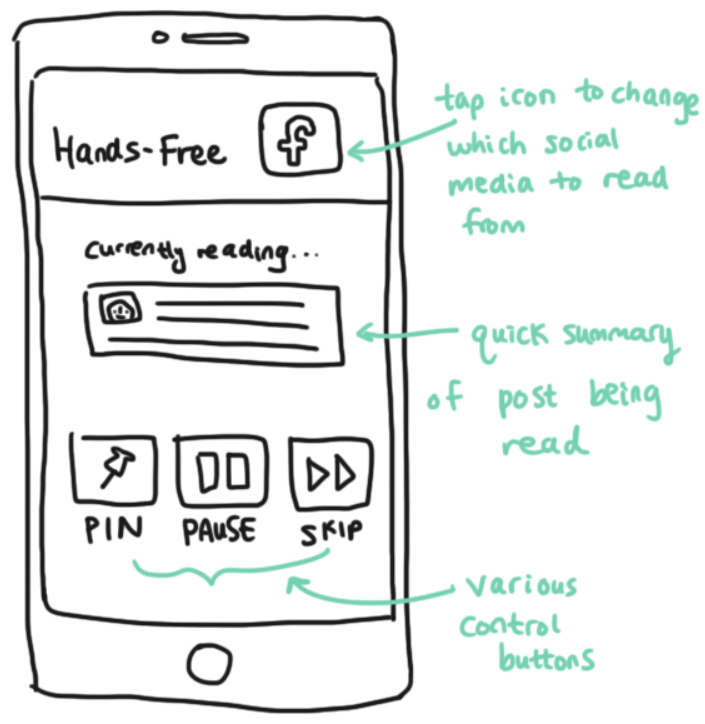 Hands-Free
f
tap icon to change
which social
media to read
from
currently reading...
quick summary
of post being
read
PIN PAUSE SKIP
various
control
buttons